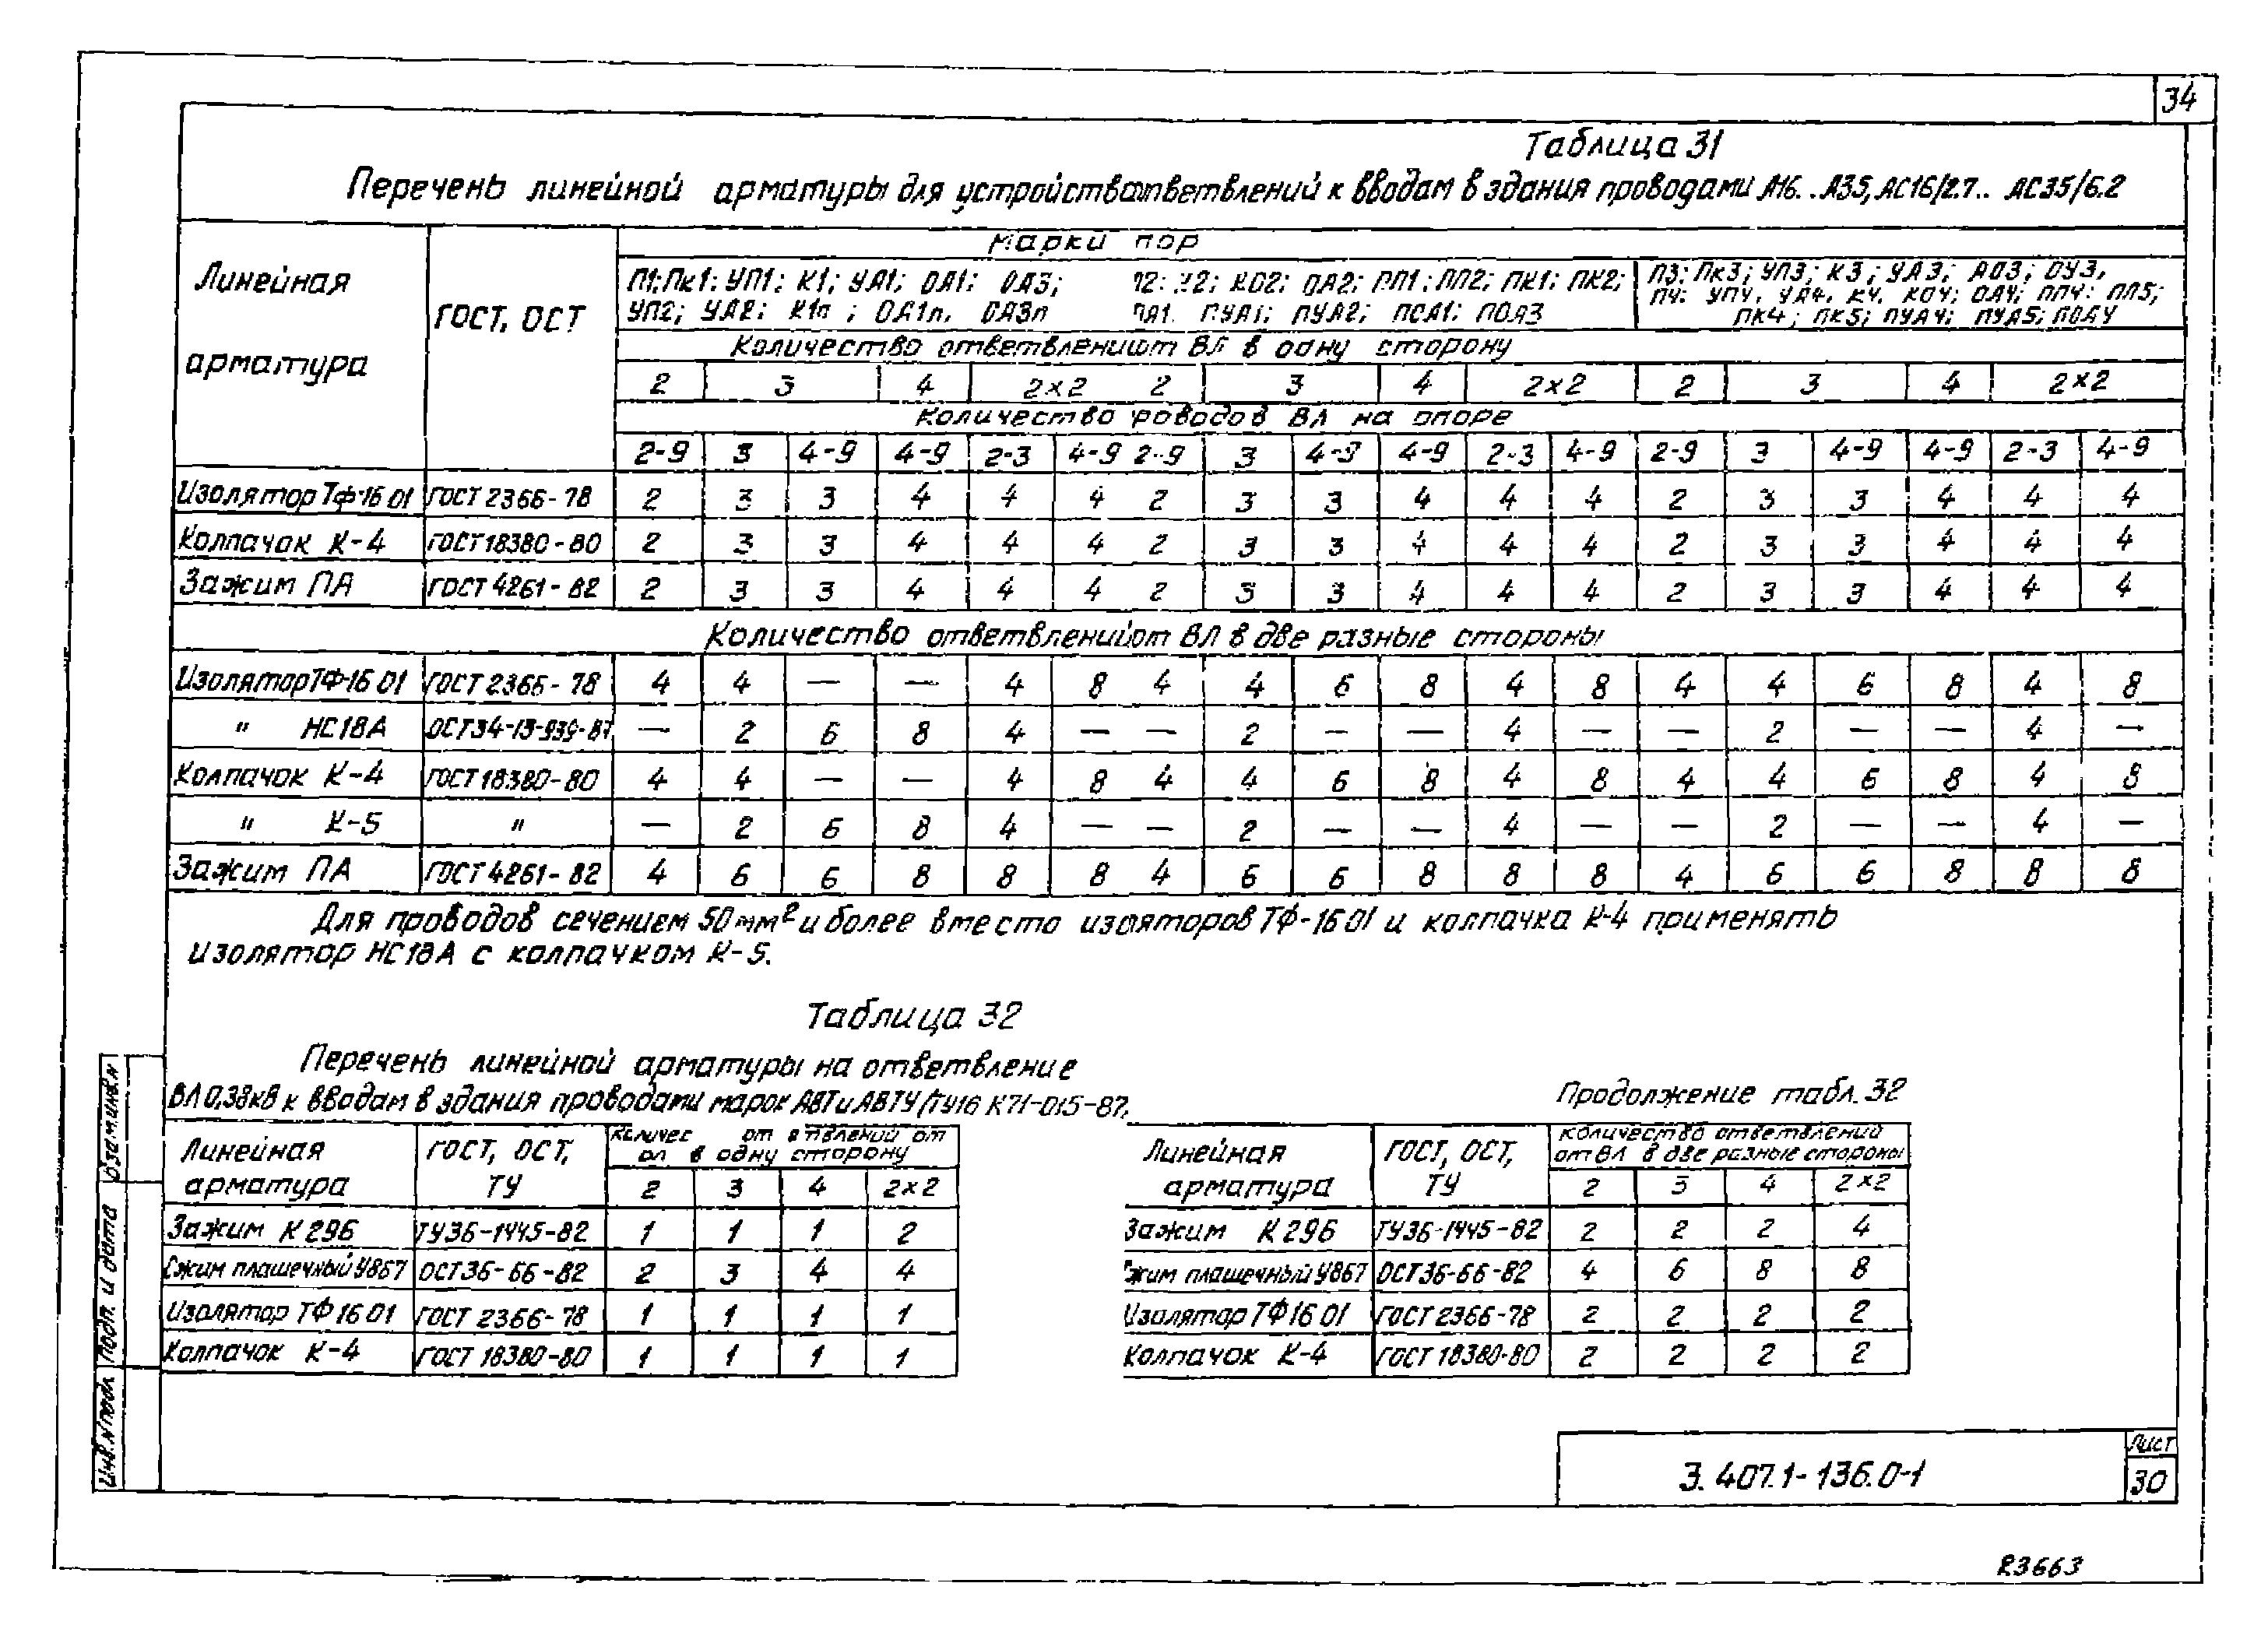 34
Таблица 31
Перечень линейной арматуры для устройства ответвлений к вводам в здания проводами А16..А35, АС16/2.7.. АС35/6.2
Линейная арматура ГОСТ, ОСТ Марки пор
П1; Пк1; УП1; К1; УА1; ОА1; ОА3;
УП2; УА2; К1п; ОА1п, ОА3п
КО2; ОА2; ПП1; ПП2; ПК1; ПК2;
ПА1. ПУА1; ПУА2; ПСА1; ПОА3
П3; Пк3; УП3; К3; УА3; АО3; ОУ3,
П4: УП4, УА4, К4, КО4; ОА4; ПП4; ПП5;
ПК4; ПК5; ПУА4; ПУА5; ПОА4
Количество ответвлений от ВЛ в одну сторону
2 3 4 2×2 2 3 4 2×2 2 3 4 2×2
Количество роводов ВЛ на опоре
2-9 3 4-9 4-9 2-3 4-9 2-9 3 4-9 4-9 2-3 4-9 2-9 3 4-9 4-9 2-3 4-9
Изолятор Тф-16 01 ГОСТ 2366-78 2 3 3 4 4 4 2 3 3 4 4 4 2 3 3 4 4 4
Колпачок К-4 ГОСТ 18380-80 2 3 3 4 4 4 2 3 3 4 4 4 2 3 3 4 4 4
Зажим ПА ГОСТ 4261-82 2 3 3 4 4 4 2 3 3 4 4 4 2 3 3 4 4 4
Количество ответвлений от ВЛ в две разные стороны
Изолятор ТФ-16 01 ГОСТ 2366-78 4 4 — — 4 8 4 4 6 8 4 8 4 4 6 8 4 8
" НС18А ОСТ34-13-939-87 — 2 6 8 4 — — 2 — — 4 — — 2 — — 4 —
Колпачок К-4 ГОСТ 18380-80 4 4 — — 4 8 4 4 6 8 4 8 4 4 6 8 4 8
" К-5 " — 2 6 8 4 — — 2 — — 4 — — 2 — — 4 —
Зажим ПА ГОСТ 4261-82 4 6 6 8 8 8 4 6 6 8 8 8 4 6 6 8 8 8
Для проводов сечением 50 мм² и более вместо изоляторов ТФ-16 01 и колпачка К-4 применять
изолятор НС18А с колпачком К-5.
Таблица 32
Перечень линейной арматуры на ответвление
ВЛ 0,38кВ к вводам в здания проводами марок АВТ и АВТУ (ТУ16 К71-015-87.
Линейная арматура ГОСТ, ОСТ, ТУ Количес от в твлений от
вл в одну сторону
2 3 4 2×2
Зажим К296 ТУ36-1445-82 1 1 1 2
Сжим плашечный У867 ОСТ36-66-82 2 3 4 4
Изолятор ТФ 16 01 ГОСТ 2366-78 1 1 1 1
Колпачок К-4 ГОСТ 18380-80 1 1 1 1
Продолжение табл. 32
Линейная арматура ГОСТ, ОСТ, ТУ Количество ответвлений
от ВЛ в две разные стороны
2 3 4 2×2
Зажим К296 ТУ36-1445-82 2 2 2 4
жим плашечный У867 ОСТ36-66-82 4 6 8 8
Изолятор ТФ 16 01 ГОСТ 2366-78 2 2 2 2
Колпачок К-4 ГОСТ 18380-80 2 2 2 2
Взам.инв.N
Подп. и дата
Инв.N подл
3.407.1-136.0-1
Лист
30
23663